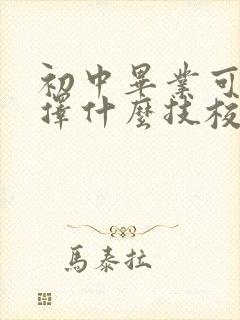 初中畢業可
擇什麼技校
馬泰拉